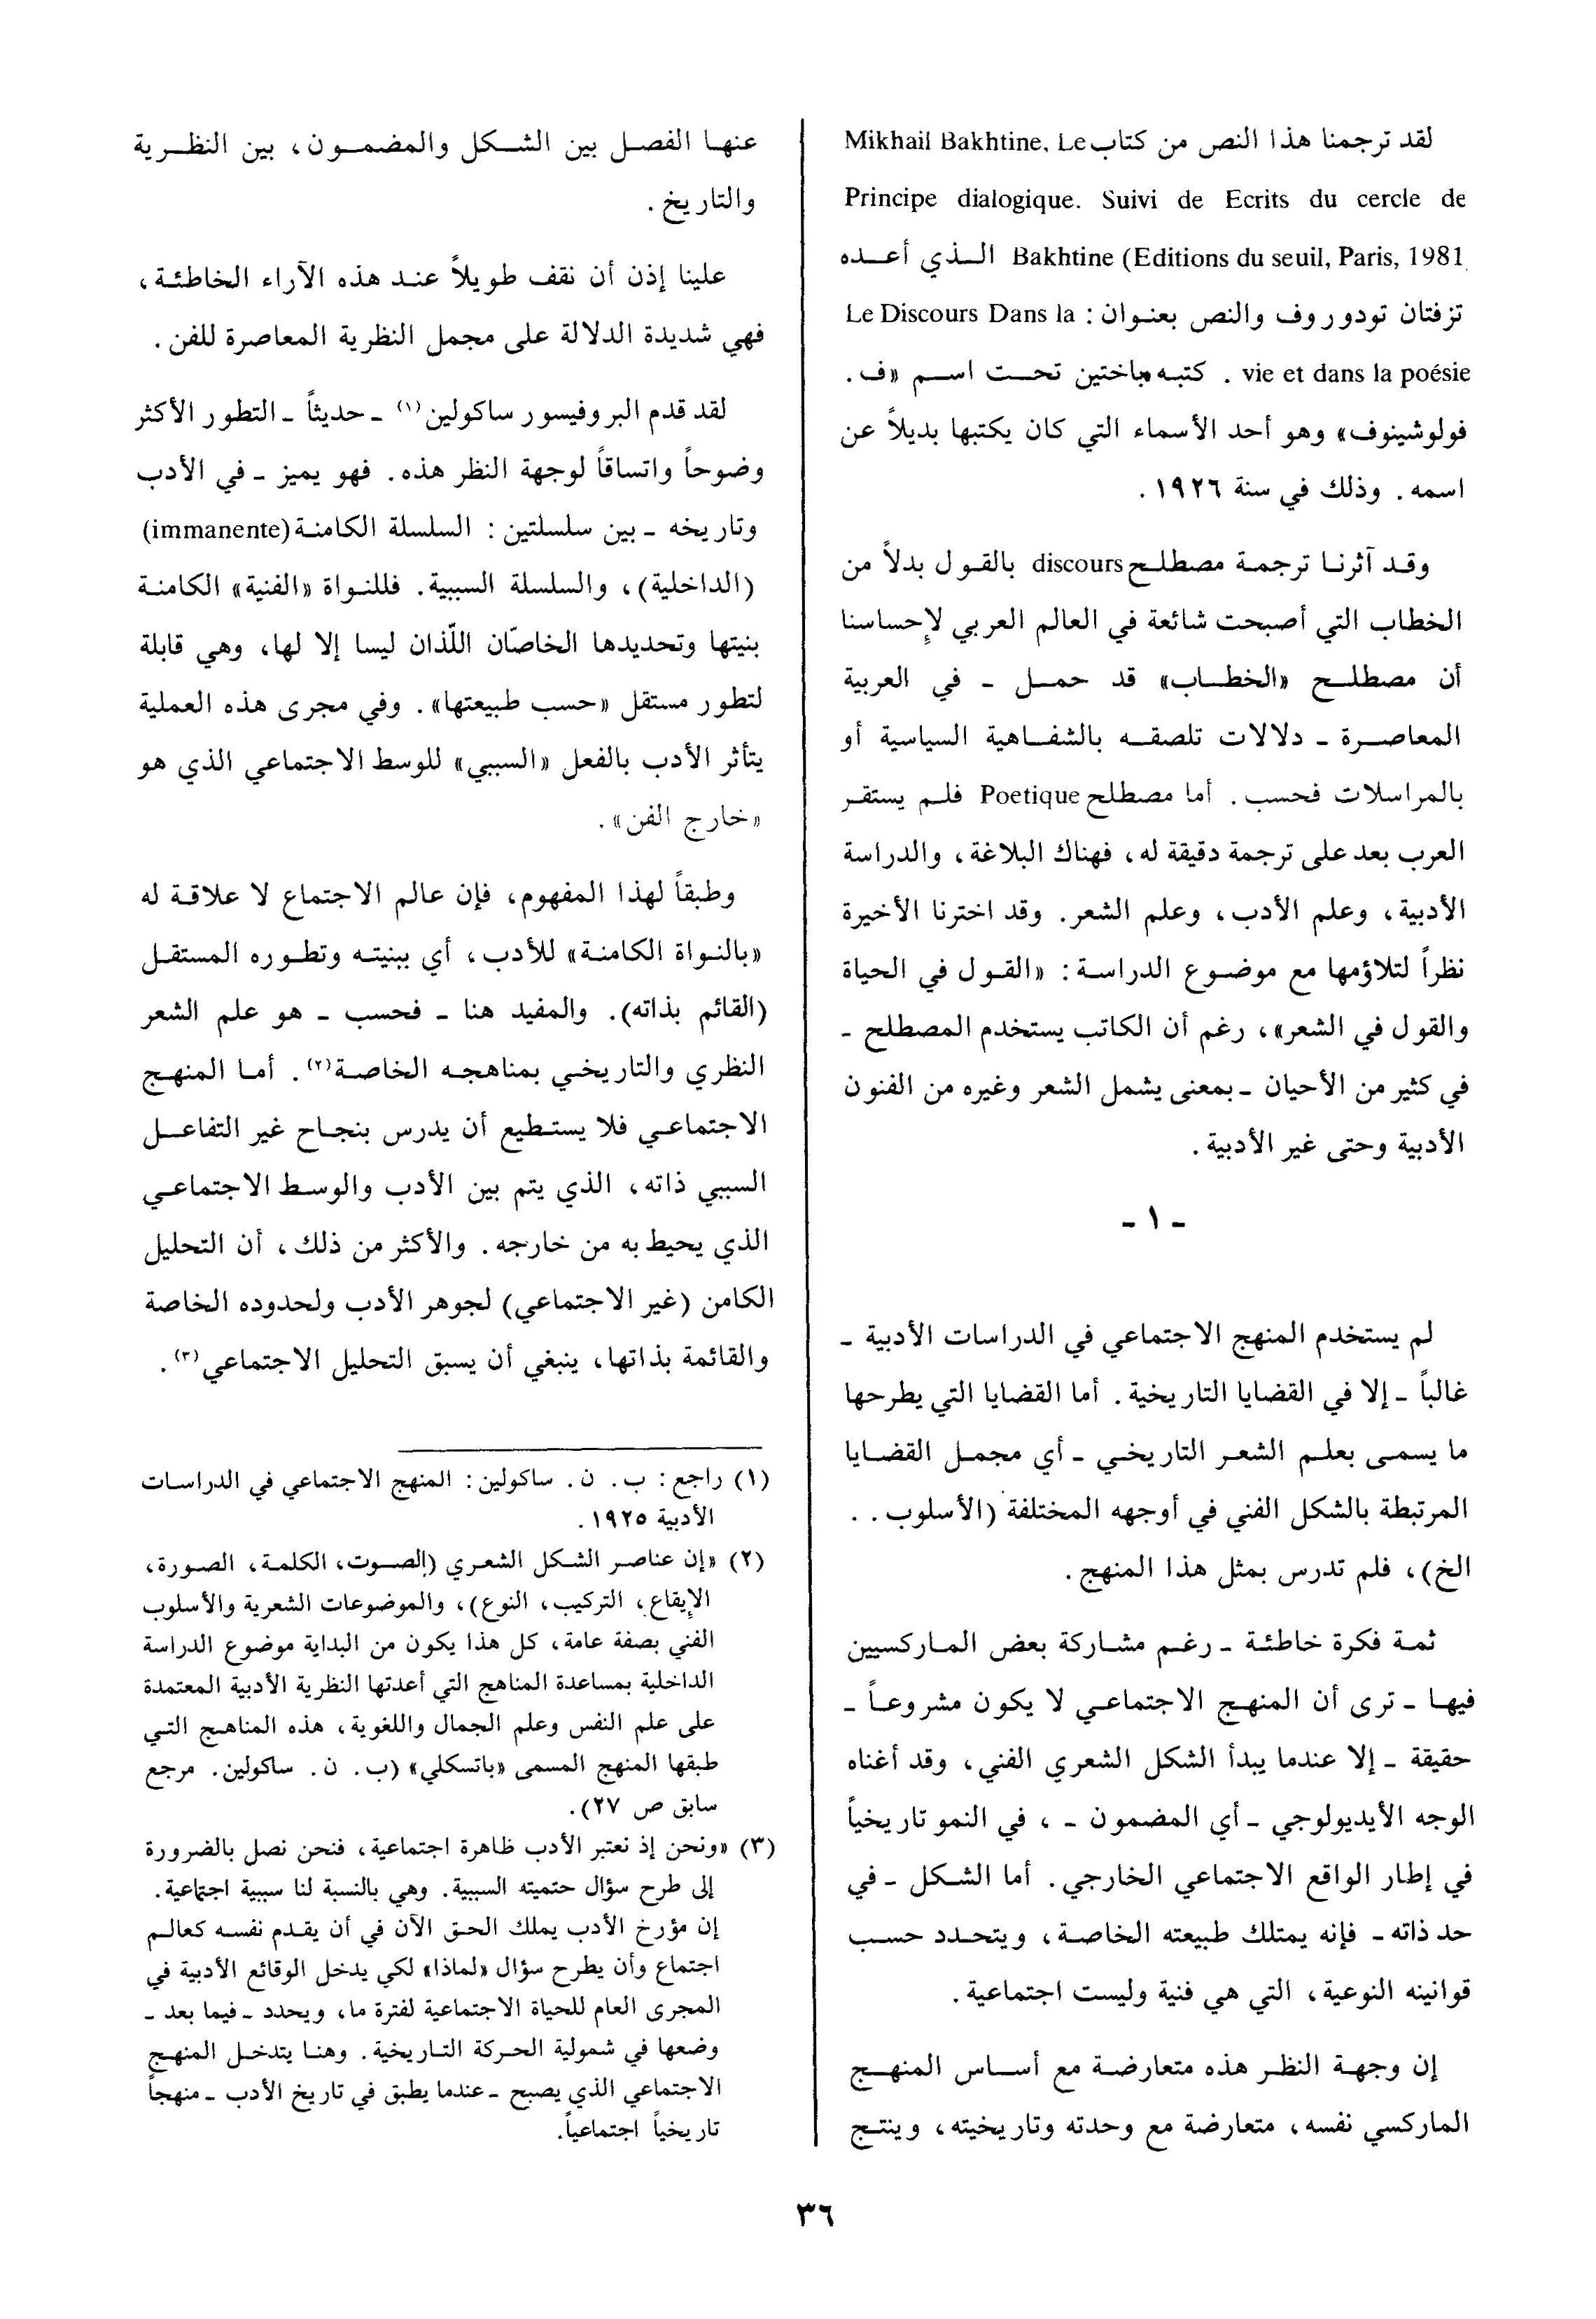 لقد ترجمنا هذا النص من كتاب Mikhail Bakhtine, Le
Principe dialogique. Suivi de Ecrits du cercle de
Bakhtine (Editions du seuil, Paris, 1981, الـذي أعـده
تزفتان تودوروف والنص بعنوان : Le Discours Dans la
vie et dans la poésie . كتبه باختين تحت اسم «ف .
فولوشينوف» وهو أحد الأسماء التي كان يكتبها بديلاً عن
اسمه . وذلك في سنة ١٩٢٦ .
وقد آثرنا ترجمة مصطلح discours بالقول بدلاً من
الخطاب التي أصبحت شائعة في العالم العربي لإحساسنا
أن مصطلح «الخطاب» قد حمل - في العربية
المعاصرة - دلالات تلصقه بالشفاهية السياسية أو
بالمراسلات فحسب . أما مصطلح Poetique فلم يستقر
العرب بعد على ترجمة دقيقة له ، فهناك البلاغة ، والدراسة
الأدبية ، وعلم الأدب ، وعلم الشعر . وقد اخترنا الأخيرة
نظراً لتلاؤمها مع موضوع الدراسة : «القول في الحياة
والقول في الشعر» ، رغم أن الكاتب يستخدم المصطلح -
في كثير من الأحيان - بمعنى يشمل الشعر وغيره من الفنون
الأدبية وحتى غير الأدبية .
- ١ -
لم يستخدم المنهج الاجتماعي في الدراسات الأدبية -
غالباً - إلا في القضايا التاريخية . أما القضايا التي يطرحها
ما يسمى بعلم الشعر التاريخي - أي مجمل القضايا
المرتبطة بالشكل الفني في أوجهه المختلفة (الأسلوب . .
الخ) ، فلم تدرس بمثل هذا المنهج .
ثمة فكرة خاطئة - رغم مشاركة بعض الماركسيين
فيها - ترى أن المنهج الاجتماعي لا يكون مشروعاً -
حقيقة - إلا عندما يبدأ الشكل الشعري الفني ، وقد أغناه
الوجه الأيديولوجي - أي المضمون - ، في النمو تاريخياً
في إطار الواقع الاجتماعي الخارجي . أما الشكل - في
حد ذاته - فإنه يمتلك طبيعته الخاصة ، ويتحدد حسب
قوانينه النوعية ، التي هي فنية وليست اجتماعية .
إن وجهة النظر هذه متعارضة مع أساس المنهج
الماركسي نفسه ، متعارضة مع وحدته وتاريخيته ، وينتج
عنها الفصل بين الشكل والمضمون ، بين النظرية
والتاريخ .
علينا إذن أن نقف طويلاً عند هذه الآراء الخاطئة ،
فهي شديدة الدلالة على مجمل النظرية المعاصرة للفن .
لقد قدم البروفيسور ساكولين (١) - حديثاً - التطور الأكثر
وضوحاً واتساقاً لوجهة النظر هذه . فهو يميز - في الأدب
وتاريخه - بين سلسلتين : السلسلة الكامنة (immanente)
(الداخلية) ، والسلسلة السببية . فللنواة «الفنية» الكامنة
بنيتها وتحديدها الخاصّان اللّذان ليسا إلا لها ، وهي قابلة
لتطور مستقل «حسب طبيعتها» . وفي مجرى هذه العملية
يتأثر الأدب بالفعل «السببي» للوسط الاجتماعي الذي هو
«خارج الفن» .
وطبقاً لهذا المفهوم ، فإن عالم الاجتماع لا علاقة له
«بالنواة الكامنة» للأدب ، أي ببنيته وتطوره المستقل
(القائم بذاته) . والمفيد هنا - فحسب - هو علم الشعر
النظري والتاريخي بمناهجه الخاصة (٢) . أما المنهج
الاجتماعي فلا يستطيع أن يدرس بنجاح غير التفاعل
السببي ذاته ، الذي يتم بين الأدب والوسط الاجتماعي
الذي يحيط به من خارجه . والأكثر من ذلك ، أن التحليل
الكامن (غير الاجتماعي) لجوهر الأدب ولحدوده الخاصة
والقائمة بذاتها ، ينبغي أن يسبق التحليل الاجتماعي (٣) .
(١) راجع : ب . ن . ساكولين : المنهج الاجتماعي في الدراسات
الأدبية ١٩٢٥ .
(٢) «إن عناصر الشكل الشعري (الصوت ، الكلمة ، الصورة ،
الإيقاع ، التركيب ، النوع) ، والموضوعات الشعرية والأسلوب
الفني بصفة عامة ، كل هذا يكون من البداية موضوع الدراسة
الداخلية بمساعدة المناهج التي أعدتها النظرية الأدبية المعتمدة
على علم النفس وعلم الجمال واللغوية ، هذه المناهج التي
طبقها المنهج المسمى «باتسكلي» (ب . ن . ساكولين . مرجع
سابق ص ٢٧) .
(٣) «ونحن إذ نعتبر الأدب ظاهرة اجتماعية ، فنحن نصل بالضرورة
إلى طرح سؤال حتميته السببية . وهي بالنسبة لنا سببية اجتماعية .
إن مؤرخ الأدب يملك الحق الآن في أن يقدم نفسه كعالم
اجتماع وأن يطرح سؤال «لماذا» لكي يدخل الوقائع الأدبية في
المجرى العام للحياة الاجتماعية لفترة ما ، ويحدد - فيما بعد -
وضعها في شمولية الحركة التاريخية . وهنا يتدخل المنهج
الاجتماعي الذي يصبح - عندما يطبق في تاريخ الأدب - منهجاً
تاريخياً اجتماعياً .
٣٦